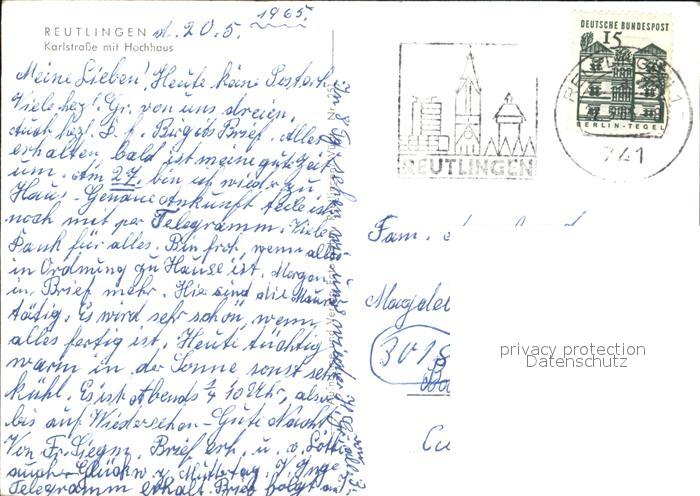 REUTLINGEN d. 20.5. 1965.
Karlstraße mit Hochhaus
Meine Lieben! Heute keine Postark.
Viele herzl. Gr. von uns dreien,
Auch herzl. D. f. Birgits Brief. Alles
erhalten, bald ist meine gute Zeit
um. Am 27. bin ich wieder zu
Haus. Genaue Ankunft teile ich
noch mit per Telegramm. Viele
Dank für alles. Bin froh, wenn alles
in Ordnung zu Hause ist. Morgen
in Brief mehr. Hier sind die Maurer
tätig. Es wird sehr schön, wenn
alles fertig ist. Heute tüchtig
warm in der Sonne sonst sehr
kühl. Es ist Abends 1/4 10 Uhr, also
bis auf Wiedersehen - Gute Nacht
Von Fr. Siegm. Brief erh. u. v. Lotte
auch. Glückw. z. Muttertag. Inge
Telegramm erhalt. Brief folgt
In 8 Tg. sehen wir uns wieder
DEUTSCHE BUNDESPOST
15
BERLIN-TEGEL
REUTLINGEN
741
Fam.
Magdel
301
privacy protection
Datenschutz